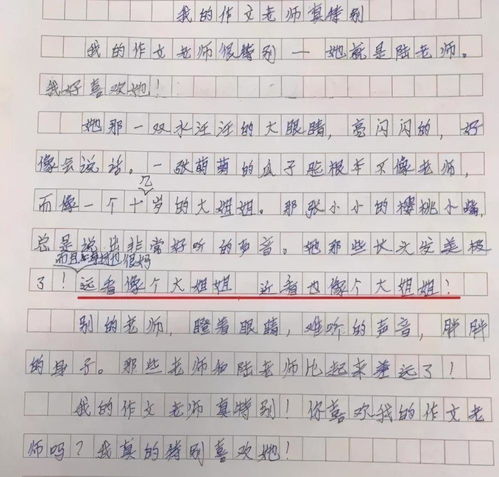 我的作文老师真特别
我的作文老师很特别——她就是陆老师。
我好喜欢她！
她那一双水汪汪的大眼睛，亮闪闪的，好
像会说话。一张萌萌的瓜子脸根本不像老师，
几
而像一个十岁的大姐姐。那张小小的樱桃小嘴，
总是说出非常好听的声音。她那些长头发美极
而且 很好
了！远看像个大姐姐 近看也像个大姐姐！
别的老师，瞪着眼睛，难听的声音，胖胖
的身子。那些老师和陆老师比起来差远了！
我的作文老师真特别！你喜欢我的作文老
师吗？我真的特别喜欢她！